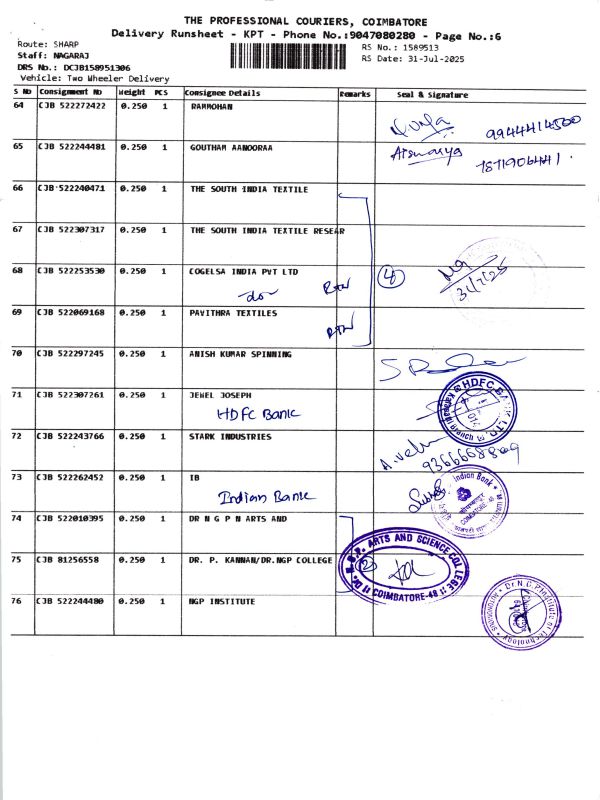 THE PROFESSIONAL COURIERS, COIMBATORE
Delivery Runsheet - KPT - Phone No.:9047080280 - Page No.:6
Route: SHARP
Staff: NAGARAJ
DRS No.: DCJB158951306
Vehicle: Two Wheeler Delivery
RS No.: 1589513
RS Date: 31-Jul-2025
S NO Consignment No Weight PCS Consignee Details Remarks Seal & Signature
64 CJB 522272422 0.250 1 RAMMOHAN
9944414500
65 CJB 522244481 0.250 1 GOUTHAM AANOORAA
66 CJB 522240471 0.250 1 THE SOUTH INDIA TEXTILE
67 CJB 522307317 0.250 1 THE SOUTH INDIA TEXTILE RESEAR
68 CJB 522253530 0.250 1 COGELSA INDIA PVT LTD
4
31/7/25
69 CJB 522069168 0.250 1 PAVITHRA TEXTILES
70 CJB 522297245 0.250 1 ANISH KUMAR SPINNING
71 CJB 522307261 0.250 1 JEWEL JOSEPH
HDFC Bank
HDFC BANK LTD
72 CJB 522243766 0.250 1 STARK INDUSTRIES
73 CJB 522262452 0.250 1 IB
Indian Bank
Indian Bank
COIMBATORE
74 CJB 522010395 0.250 1 DR N G P N ARTS AND
75 CJB 81256558 0.250 1 DR. P. KANNAN/DR.NGP COLLEGE
2
ARTS AND SCIENCE COLLEGE
COIMBATORE-48
76 CJB 522244480 0.250 1 NGP INSTITUTE
Dr.N.G.P.Institute of Technology